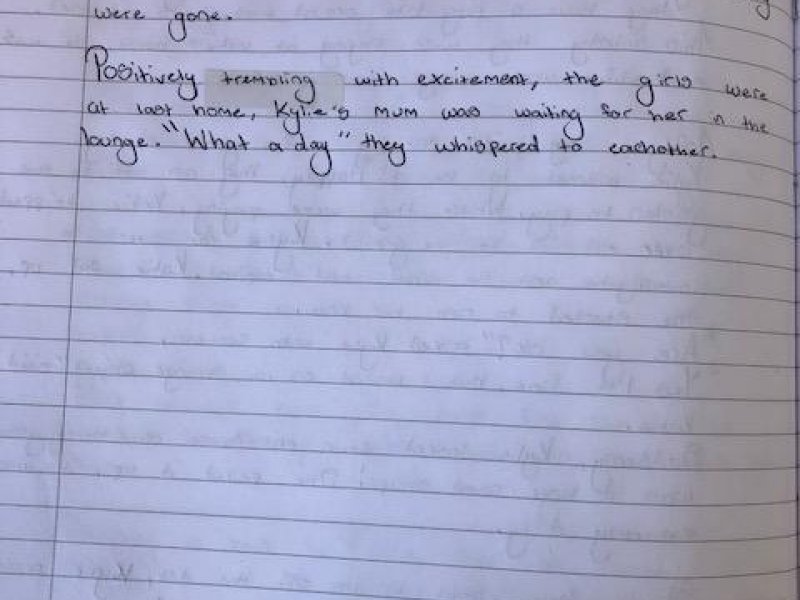 were gone.
Positively trembling with excitement, the girls were
at last home, Kylie's mum was waiting for her in the
lounge. "What a day" they whispered to eachother.